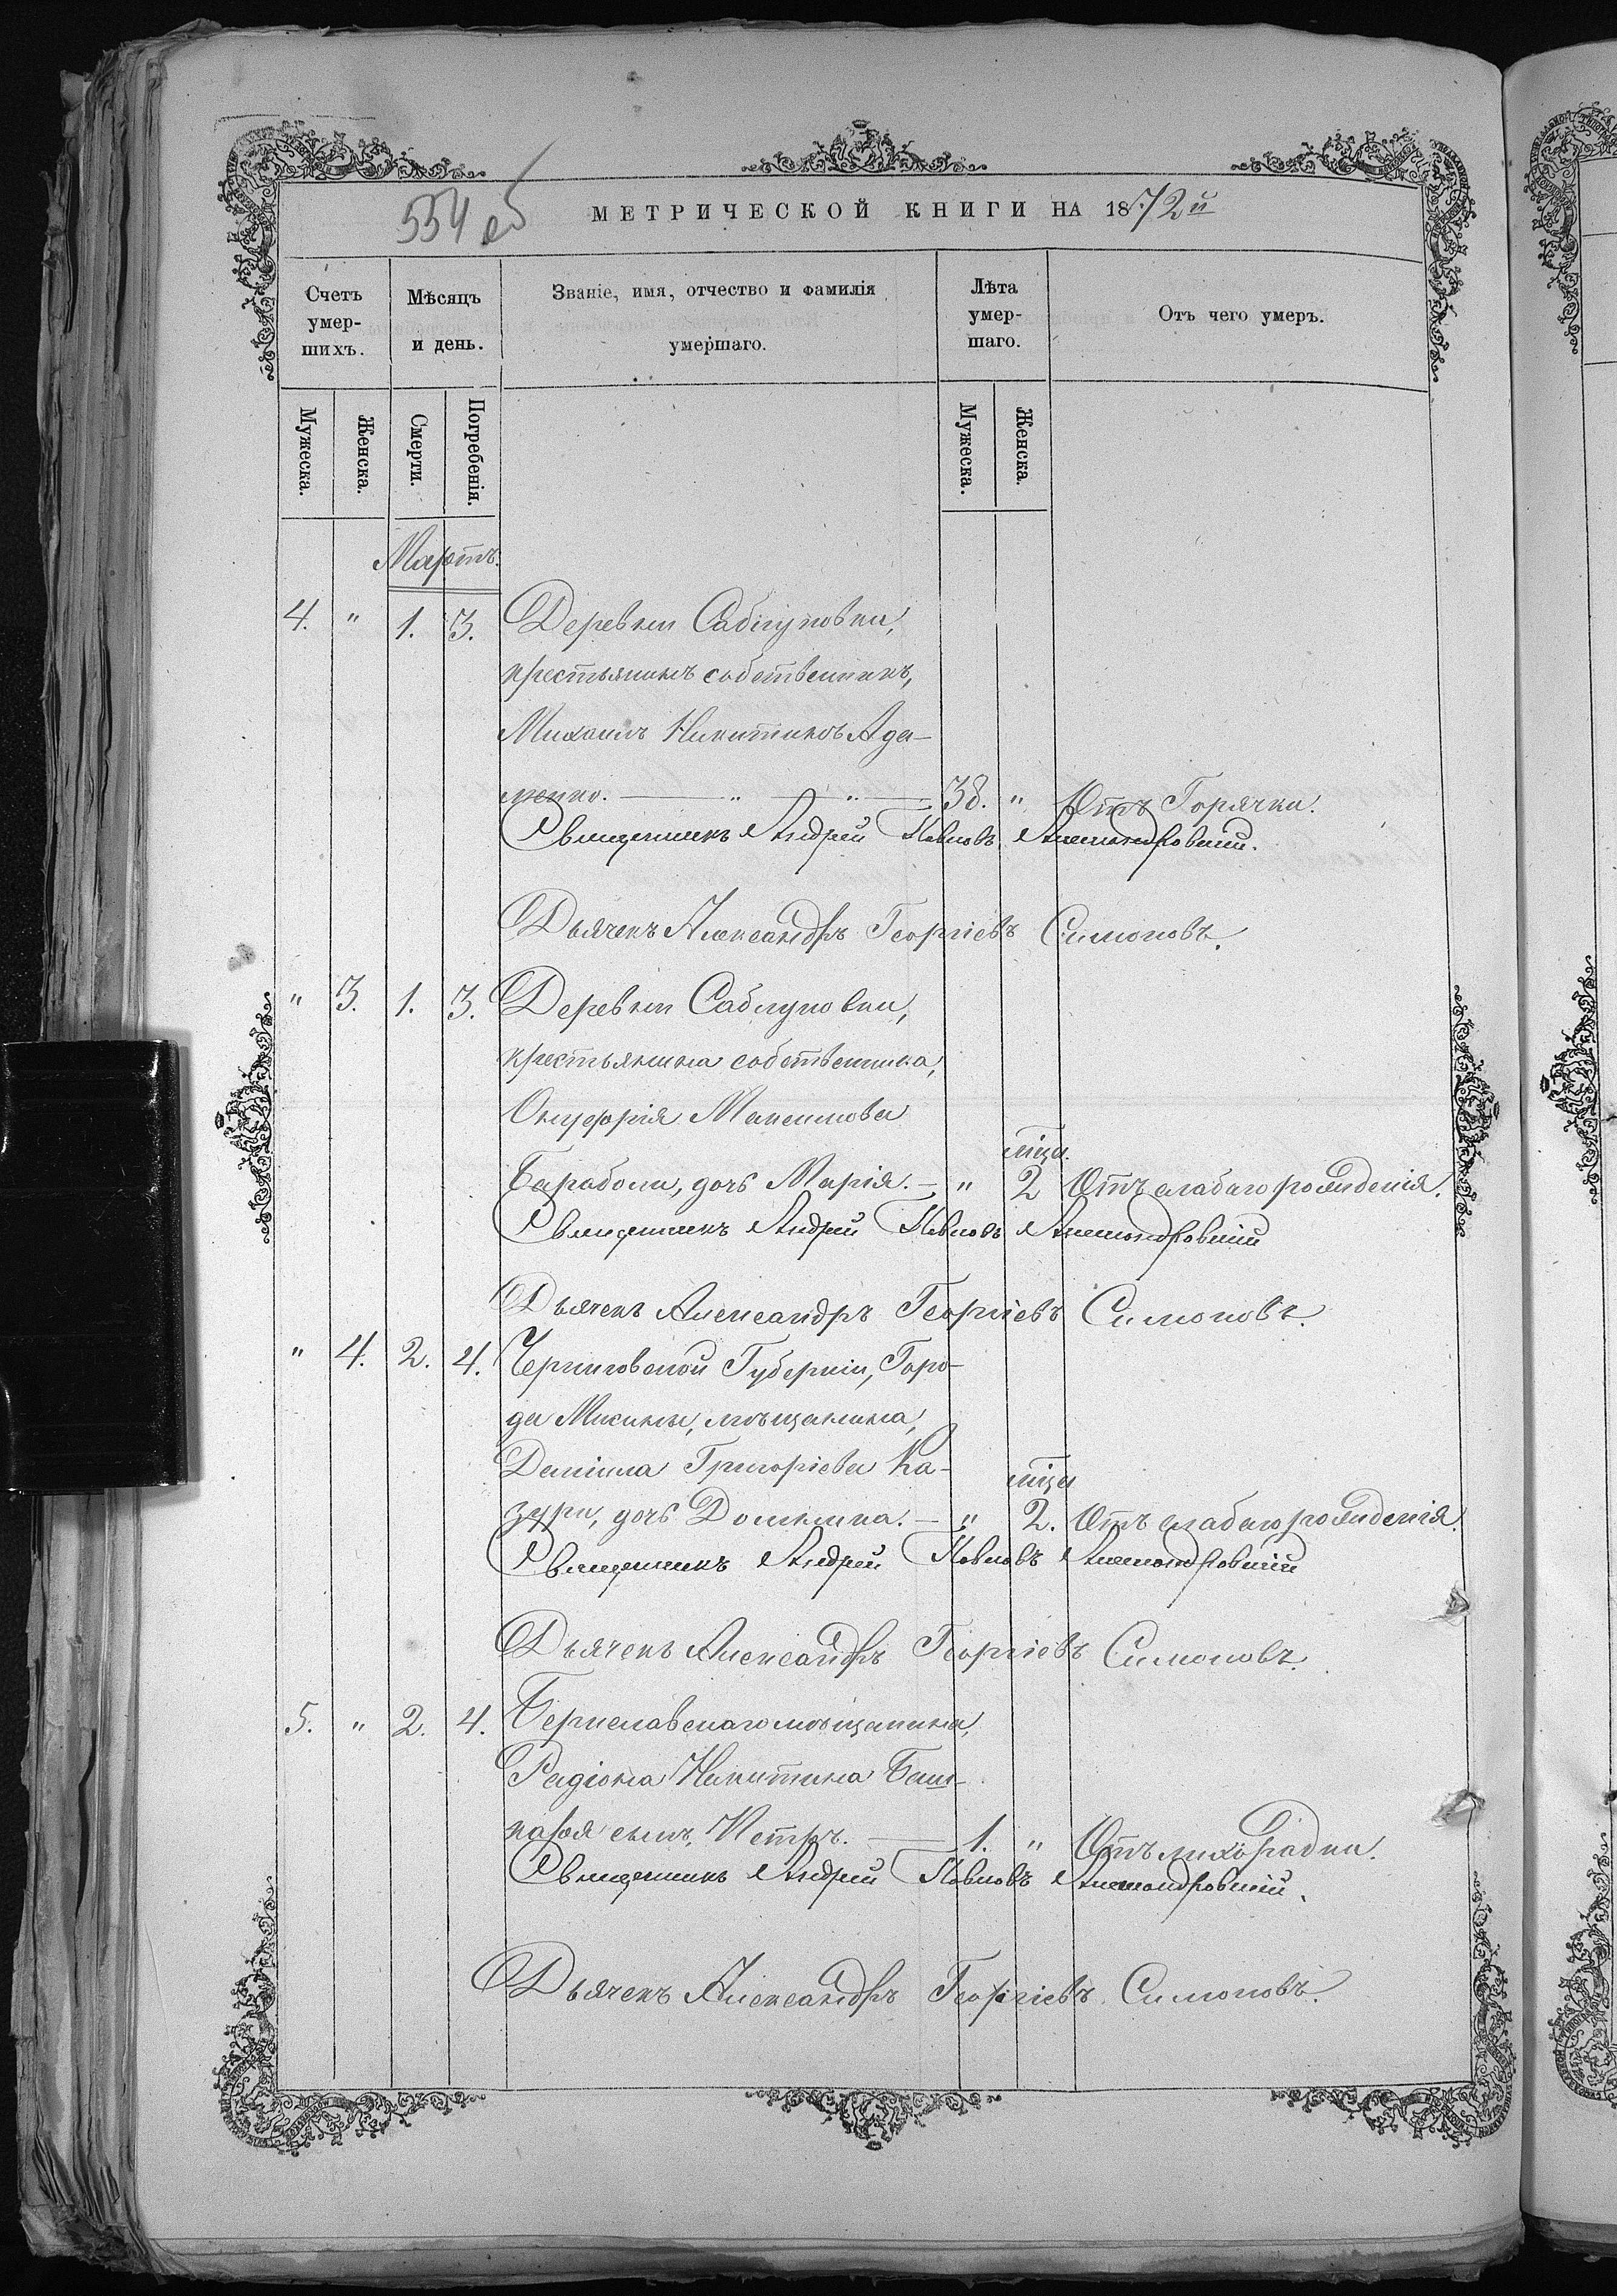 554 об
МЕТРИЧЕСКОЙ КНИГИ НА 1872й
Счетъ умер-шихъ.
Мѣсяцъ и день.
Званіе, имя, отчество и фамилія умершаго.
Лѣта умер-шаго.
Отъ чего умеръ.
Мужеска. Женска. Смерти. Погребенія. Мужеска. Женска.
Мартъ.
4. " 1. 3. Деревни Саблуковки,
крестьянинъ собственникъ,
Михаилъ Никитинъ Ада-
менко. — " — " — 38. " Отъ Горячки.
Священникъ Андрей Павловъ Александровскій.
Дьячекъ Александръ Георгіевъ Симоновъ.
" 3. 1. 3. Деревни Саблуковки,
крестьянина собственника,
Онуфрія Максимова
мца.
Бараболи, дочь Марія. — " 2 Отъ слабаго рожденія.
Священникъ Андрей Павловъ Александровскій
Дьячекъ Александръ Георгіевъ Симоновъ.
" 4. 2. 4. Черниговской Губерніи, Горо-
да Мисины, мѣщанина,
Даніила Григоріева Ка-
мца
зури, дочь Домникіа. — " 2. Отъ слабаго рожденія.
Священникъ Андрей Павловъ Александровскій
Дьячекъ Александръ Георгіевъ Симоновъ.
5. " 2. 4. Бериславскаго мѣщанина,
Радіона Никитина Баш-
каря сынъ, Петръ. — 1. " Отъ лихорадки.
Священникъ Андрей Павловъ Александровскій.
Дьячекъ Александръ Георгіевъ Симоновъ.